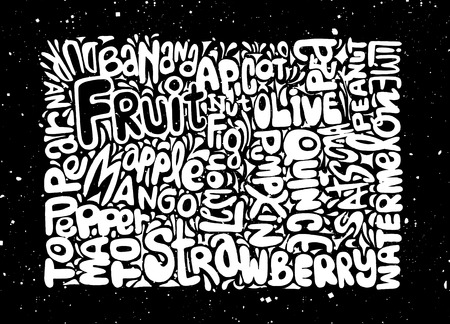 BANANA
APRICOT
PEA
PEANUT
LIME
FRUIT
NUT
OLIVE
Fig
Pear
apple
MANGO
Lemon
PUMPKIN
QUINCE
SATSUMA
WATERMELON
PEPPER
TOMATO
STRAWBERRY